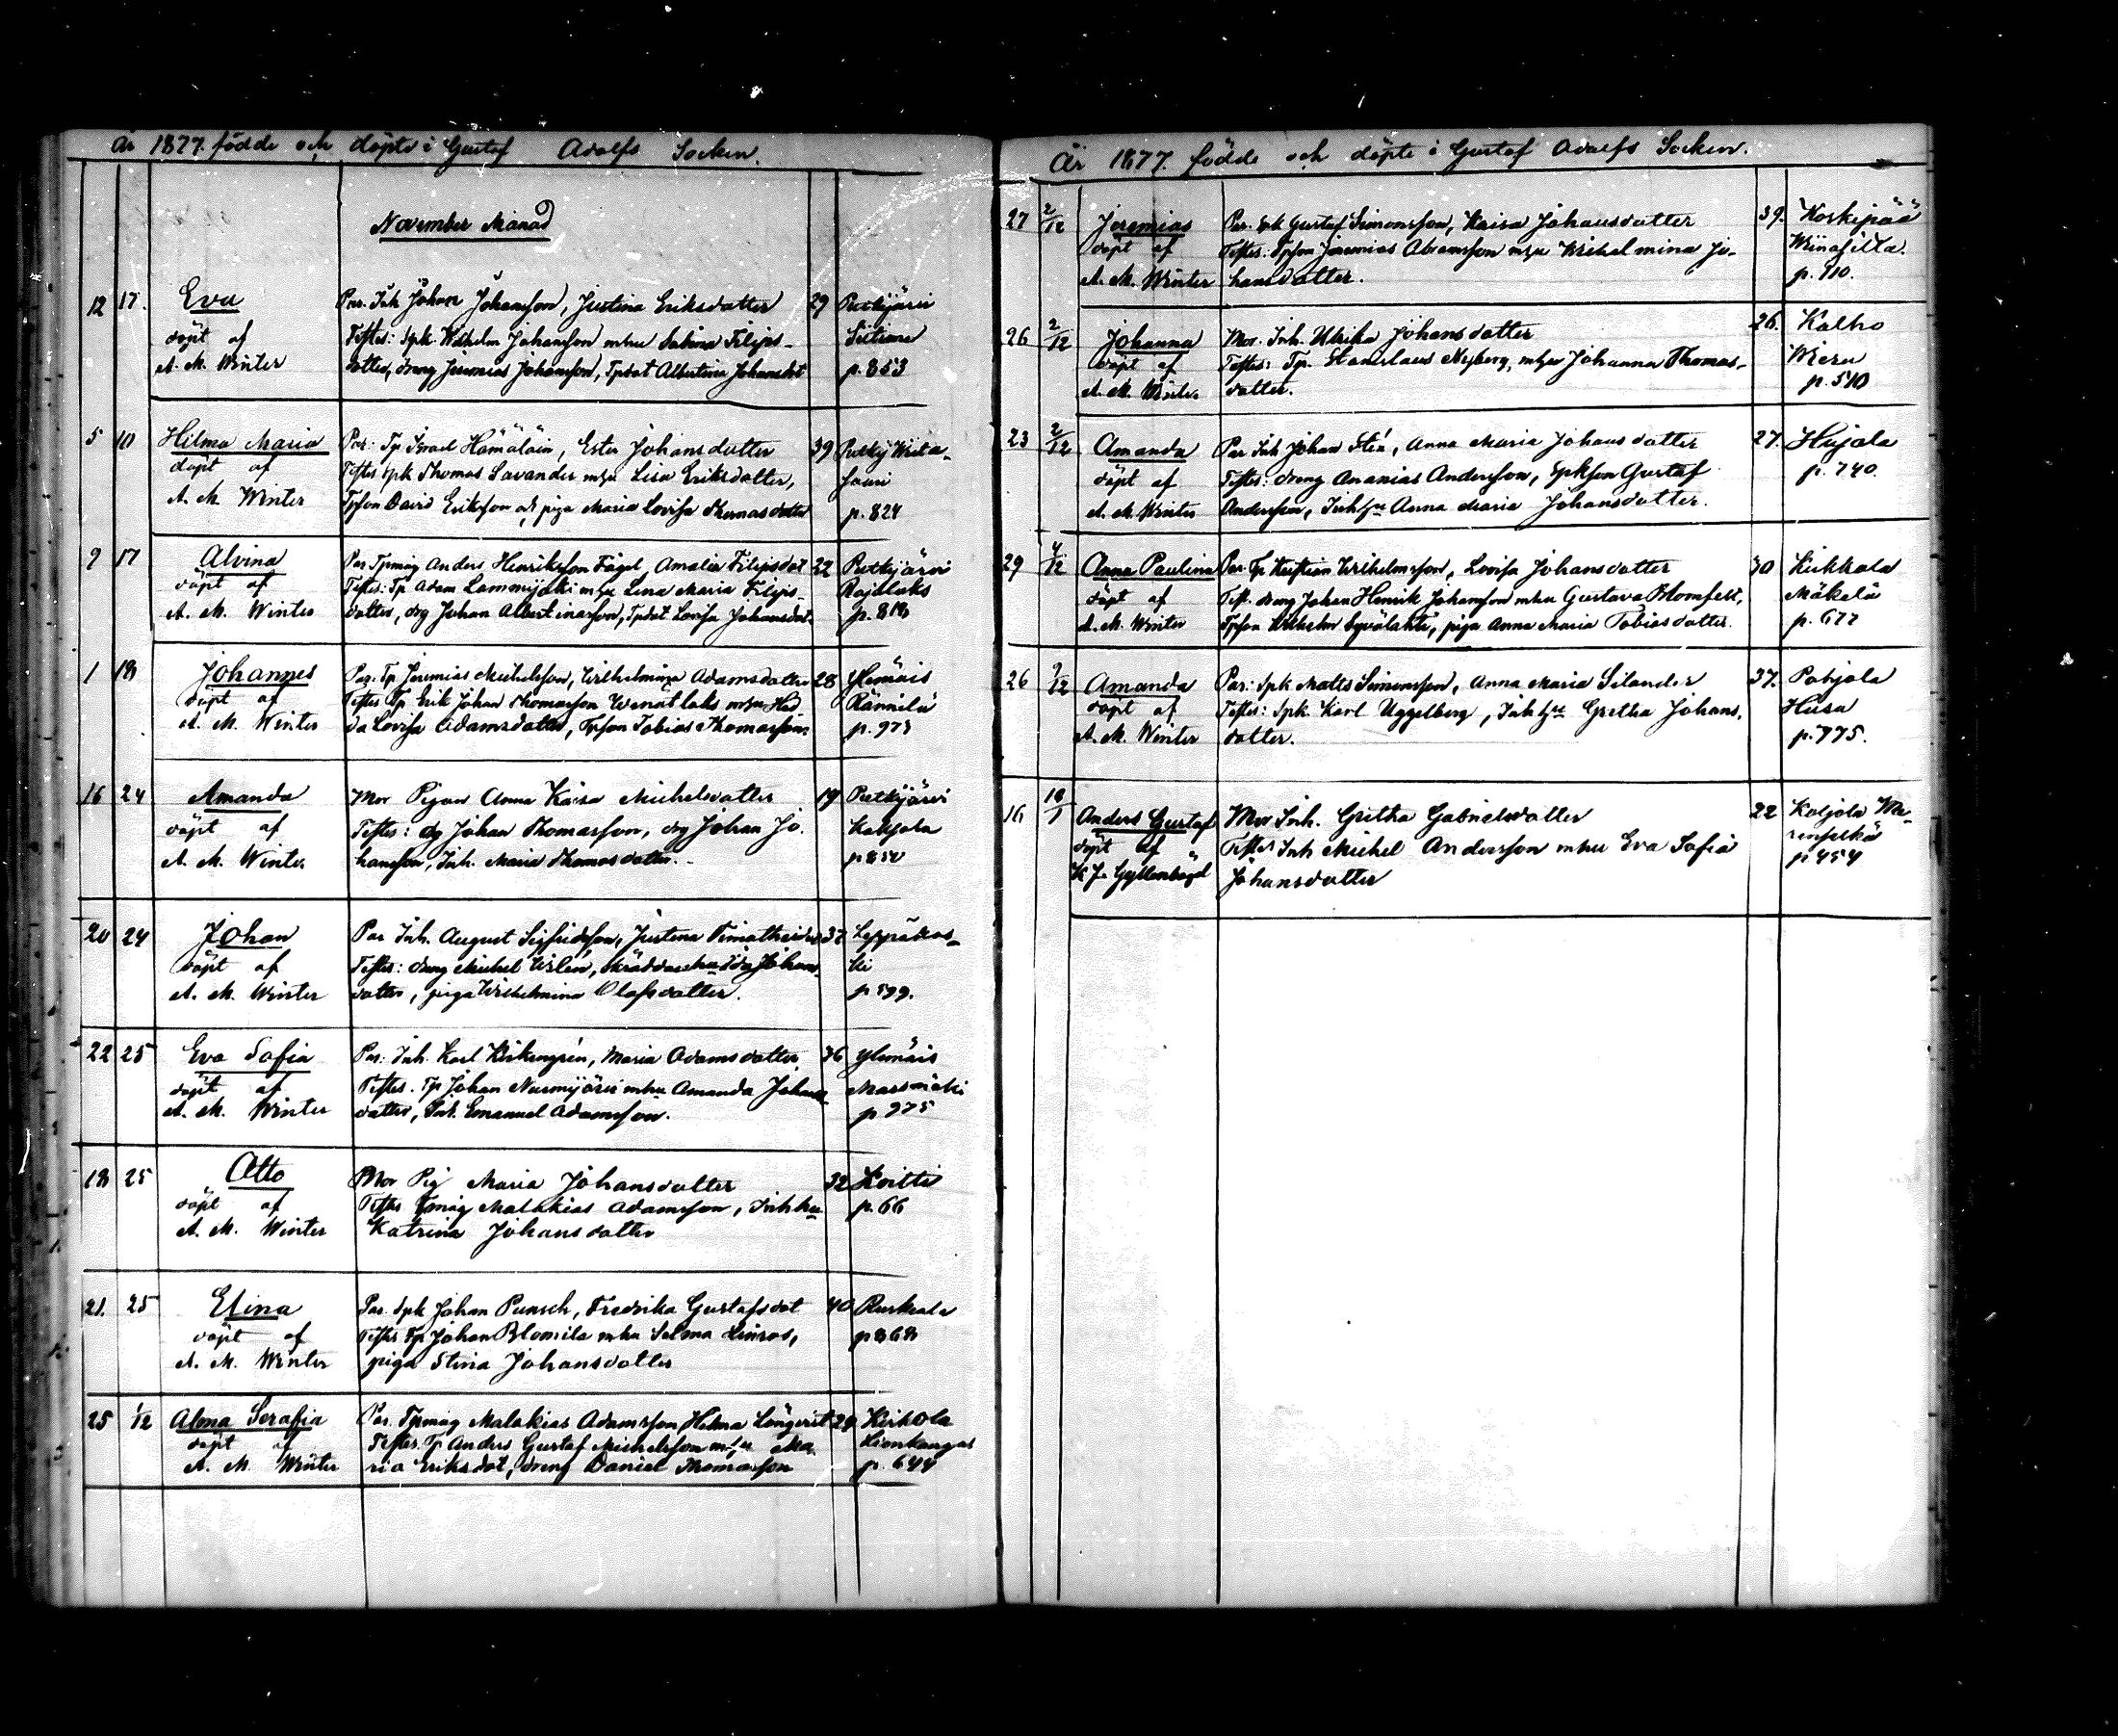 År 1877. födde och döpte i Gustaf Adolfs Socken.
November Månad
12 17. Eva Par. Inh Johan Johansson, Justina Eriksdotter 29
döpt af Testes: Spk. Wilhelm Johansson mhu Sabina Filips-
A. M. Winter dotter, dräng Jeremias Johansson, Tpdot Albertina Johansdot p. 853
5 10 Hilma Maria Par: Tp Israel Hämäläin, Ester Johansdotter 39
döpt af Testes Spk Thomas Lavander mhu Lisa Eriksdotter,
A. M. Winter Tpson David Eriksson och piga Maria Lovisa Thomasdotter p. 824
9 17 Alvina Par Tpmåg Anders Henriksson Fågel, Amalia Filipsdot 22 Putkijärvi
döpt af Testes: Tp Adam Lammijoki mhu Lena Maria Filips-
A. M. Winter dotter, drg Johan Albert inarsson, Tpdot Lovisa Johansdot. p. 818
1 18 Johannes Par. Tp Jeremias Michelsson, Wilhelmina Adamsdotter 28 Ylemäis
döpt af Testes Tp Erik Johan Thomasson mhu Hed
A. M. Winter da Lovisa Adamsdotter, Tpson Tobias Thomasson p. 973
16 24 Amanda Mor Pigan Anna Kaisa Michelsdotter 19 Putkijärvi
döpt af Testes: drg Johan Thomasson, drg Johan Jo-
A. M. Winter hansson, Inh. Maria Thomasdotter.
20 24 Johan Par Inh. August Sigfridsson, Justina 37 Leppäkos-
döpt af Testes: dräng Michel Wilén, Ida Johans- ki
A. M. Winter dotter, piga Wilhelmina Olofsdotter. p 599.
22 25 Eva Sofia Par: Inh. Karl Maria Adamsdotter 36 Ylemäis
döpt af Testes. Tp Johan Nurmijärvi mhu Amanda Johans- Marsmäki
A. M. Winter dotter, Inh. Emanuel Adamsson. p 975
18 25 Otto Mor Pig Maria Johansdotter 32 Koitti
döpt af Testes Tpmåg Malakias Adamsson, Inhhu p. 66
A. M. Winter Katrina Johansdotter
21. 25 Elina Par. Spk Johan Punsch, Fredrika Gustafsdot 40 Ruskala
döpt af Testes Tp Johan Blomila mhu Selma Linros, p 868
A. M. Winter piga Stina Johansdotter
25 1/12 Alma Serafia Par. Tpmåg Malakias Adamsson Helena Löngqvist 29 Kirkola
döpt af Testes. Tp Anders Gustaf Michelsson mhu Ma- Lionkangas
A. M. Winter ria Eriksdot, dräng Daniel Thomasson p. 644
År 1877. födde och döpte i Gustaf Adolfs Socken.
27 2/12 Jeremias Par. Spk Gustaf Simonsson, Kaisa Johansdotter 39. Koskipää
döpt af Testes: Tpson Jeremias Abramsson mhu Wilhelmina Jo-
A. M. Winter hansdotter. p. 710.
26 2/12 Johanna Mor. Inh. Ulrika Johansdotter 26. Kalho
döpt af Testes: Tp. Stanislaus Nyberg, mhu Johanna Thomas- Wieru
A. M. Winter dotter. p. 510
23 2/12 Amanda Par Inh Johan Stén, Anna Maria Johansdotter 27. Hujala
döpt af Testes: dräng Ananias Andersson, Spkson Gustaf p. 740
A. M. Winter Andersson, Inhhu Anna Maria Johansdotter.
29 4/12 Anna Paulina Par. Tp Kristian Wilhelmsson, Lovisa Johansdotter 30 Kirkkola
döpt af Test. dräng Johan Henrik Johansson mhu Gustava Blomfelt, Mäkelä
A. M. Winter Tpson Wilhelm Syvälahti, piga Anna Maria Tobiasdotter. p. 677
26 9/12 Amanda Par: Spk Matts Simonsson, Anna Maria Silander 37. Pohjola
döpt af Testes: Spk. Karl Uggelberg, Inhhu Gretha Johans- Husa
A. M. Winter dotter. p. 775.
16 18/1 Anders Gustaf Mor Inh. Gretha Gabrielsdotter 22
döpt af Testes Inh Michel Andersson mhu Eva Sofia
K J. Gyllenbögel Johansdotter p 454